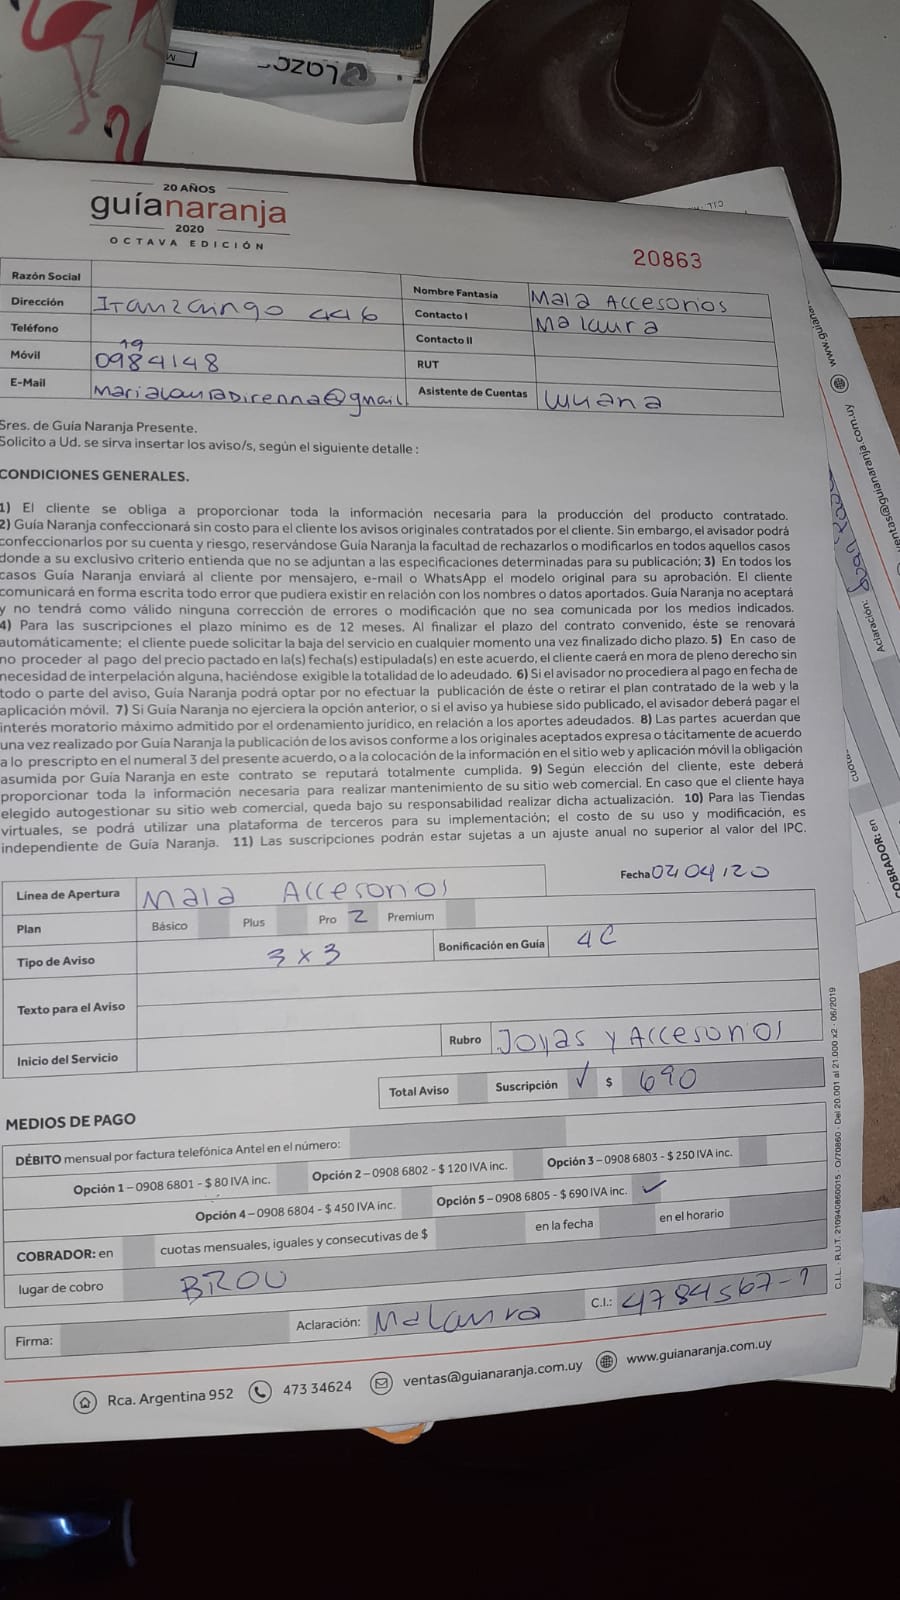 Lazo
20 AÑOS
guíanaranja
2020
OCTAVA EDICIÓN
20863
Razón Social
Nombre Fantasía Mala Accesorios
Dirección Ituzaingo 446
Contacto I Ma Laura
Teléfono
Contacto II
Móvil 0984148
19
RUT
E-Mail marialauradirenna@gmail
Asistente de Cuentas Luuana
Sres. de Guía Naranja Presente.
Solicito a Ud. se sirva insertar los aviso/s, según el siguiente detalle :
CONDICIONES GENERALES.
1) El cliente se obliga a proporcionar toda la información necesaria para la producción del producto contratado.
2) Guía Naranja confeccionará sin costo para el cliente los avisos originales contratados por el cliente. Sin embargo, el avisador podrá
confeccionarlos por su cuenta y riesgo, reservándose Guía Naranja la facultad de rechazarlos o modificarlos en todos aquellos casos
donde a su exclusivo criterio entienda que no se adjuntan a las especificaciones determinadas para su publicación; 3) En todos los
casos Guía Naranja enviará al cliente por mensajero, e-mail o WhatsApp el modelo original para su aprobación. El cliente
comunicará en forma escrita todo error que pudiera existir en relación con los nombres o datos aportados. Guía Naranja no aceptará
y no tendrá como válido ninguna corrección de errores o modificación que no sea comunicada por los medios indicados.
4) Para las suscripciones el plazo mínimo es de 12 meses. Al finalizar el plazo del contrato convenido, éste se renovará
automáticamente; el cliente puede solicitar la baja del servicio en cualquier momento una vez finalizado dicho plazo. 5) En caso de
no proceder al pago del precio pactado en la(s) fecha(s) estipulada(s) en este acuerdo, el cliente caerá en mora de pleno derecho sin
necesidad de interpelación alguna, haciéndose exigible la totalidad de lo adeudado. 6) Si el avisador no procediera al pago en fecha de
todo o parte del aviso, Guía Naranja podrá optar por no efectuar la publicación de éste o retirar el plan contratado de la web y la
aplicación móvil. 7) Si Guía Naranja no ejerciera la opción anterior, o si el aviso ya hubiese sido publicado, el avisador deberá pagar el
interés moratorio máximo admitido por el ordenamiento jurídico, en relación a los aportes adeudados. 8) Las partes acuerdan que
una vez realizado por Guía Naranja la publicación de los avisos conforme a los originales aceptados expresa o tácitamente de acuerdo
a lo prescripto en el numeral 3 del presente acuerdo, o a la colocación de la información en el sitio web y aplicación móvil la obligación
asumida por Guía Naranja en este contrato se reputará totalmente cumplida. 9) Según elección del cliente, este deberá
proporcionar toda la información necesaria para realizar mantenimiento de su sitio web comercial. En caso que el cliente haya
elegido autogestionar su sitio web comercial, queda bajo su responsabilidad realizar dicha actualización. 10) Para las Tiendas
virtuales, se podrá utilizar una plataforma de terceros para su implementación; el costo de su uso y modificación, es
independiente de Guía Naranja. 11) Las suscripciones podrán estar sujetas a un ajuste anual no superior al valor del IPC.
Fecha 02/04/20
Línea de Apertura Mala Accesorios
Plan Básico Plus Pro 2 Premium
Tipo de Aviso 3 x 3 Bonificación en Guía 4C
Texto para el Aviso
Inicio del Servicio Rubro Joyas y Accesorios
Total Aviso Suscripción ✓ $ 690
MEDIOS DE PAGO
DÉBITO mensual por factura telefónica Antel en el número:
Opción 1 – 0908 6801 - $ 80 IVA inc. Opción 2 – 0908 6802 - $ 120 IVA inc. Opción 3 – 0908 6803 - $ 250 IVA inc.
Opción 4 – 0908 6804 - $ 450 IVA inc. Opción 5 – 0908 6805 - $ 690 IVA inc. ✓
COBRADOR: en cuotas mensuales, iguales y consecutivas de $ en la fecha en el horario
lugar de cobro BROU
Firma: Aclaración: Ma Laura C.I.: 4784567-1
Rca. Argentina 952 473 34624 ventas@guianaranja.com.uy www.guianaranja.com.uy
C.I.L. - R.U.T. 210940860015 - O/70860 - Del 20.001 al 21.000 x2 - 06/2019
www.guiana
entas@guianaranja.com.uy
Aclaración:
cuotas
COBRADOR: en